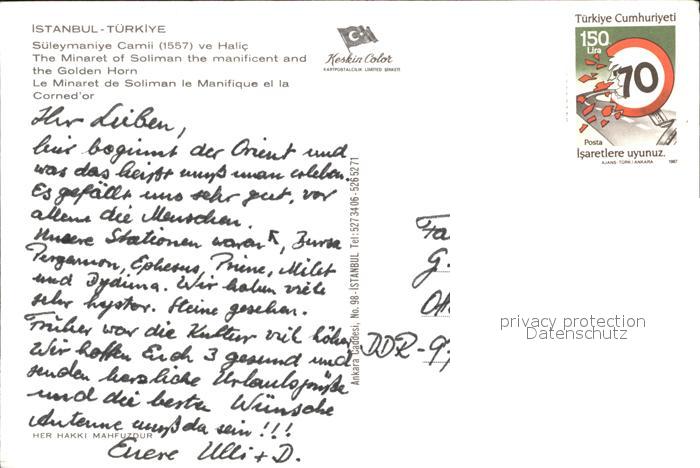 İSTANBUL-TÜRKİYE
Süleymaniye Camii (1557) ve Haliç
The Minaret of Soliman the manificent and
the Golden Horn
Le Minaret de Soliman le Manifique el la
Corned'or
Keskin Color
KARTPOSTALCILIK LIMITED ŞIRKETI
Türkiye Cumhuriyeti
150
Lira
70
Posta
İşaretlere uyunuz.
AJANS TÜRK/ANKARA 1987
Ihr Lieben,
hier beginnt der Orient und
was das heißt muß man erleben.
Es gefällt uns sehr gut, vor
allem die Menschen.
Unsere Stationen waren ↖, Bursa
Pergamon, Ephesus, Priene, Milet
und Dydima. Wir haben viele
sehr hystor. Steine gesehen.
Früher war die Kultur viel höher
Wir hoffen Euch 3 gesund und
senden herzliche Urlaubsgrüße
und die besten Wünsche
Antenne muß da sein!!!
Euere Ulli + D.
HER HAKKI MAHFUZDUR
Ankara Caddesi, No. 98-İSTANBUL Tel: 527 34 06 - 526 52 71
Fa
G.
DDR-9
privacy protection
Datenschutz